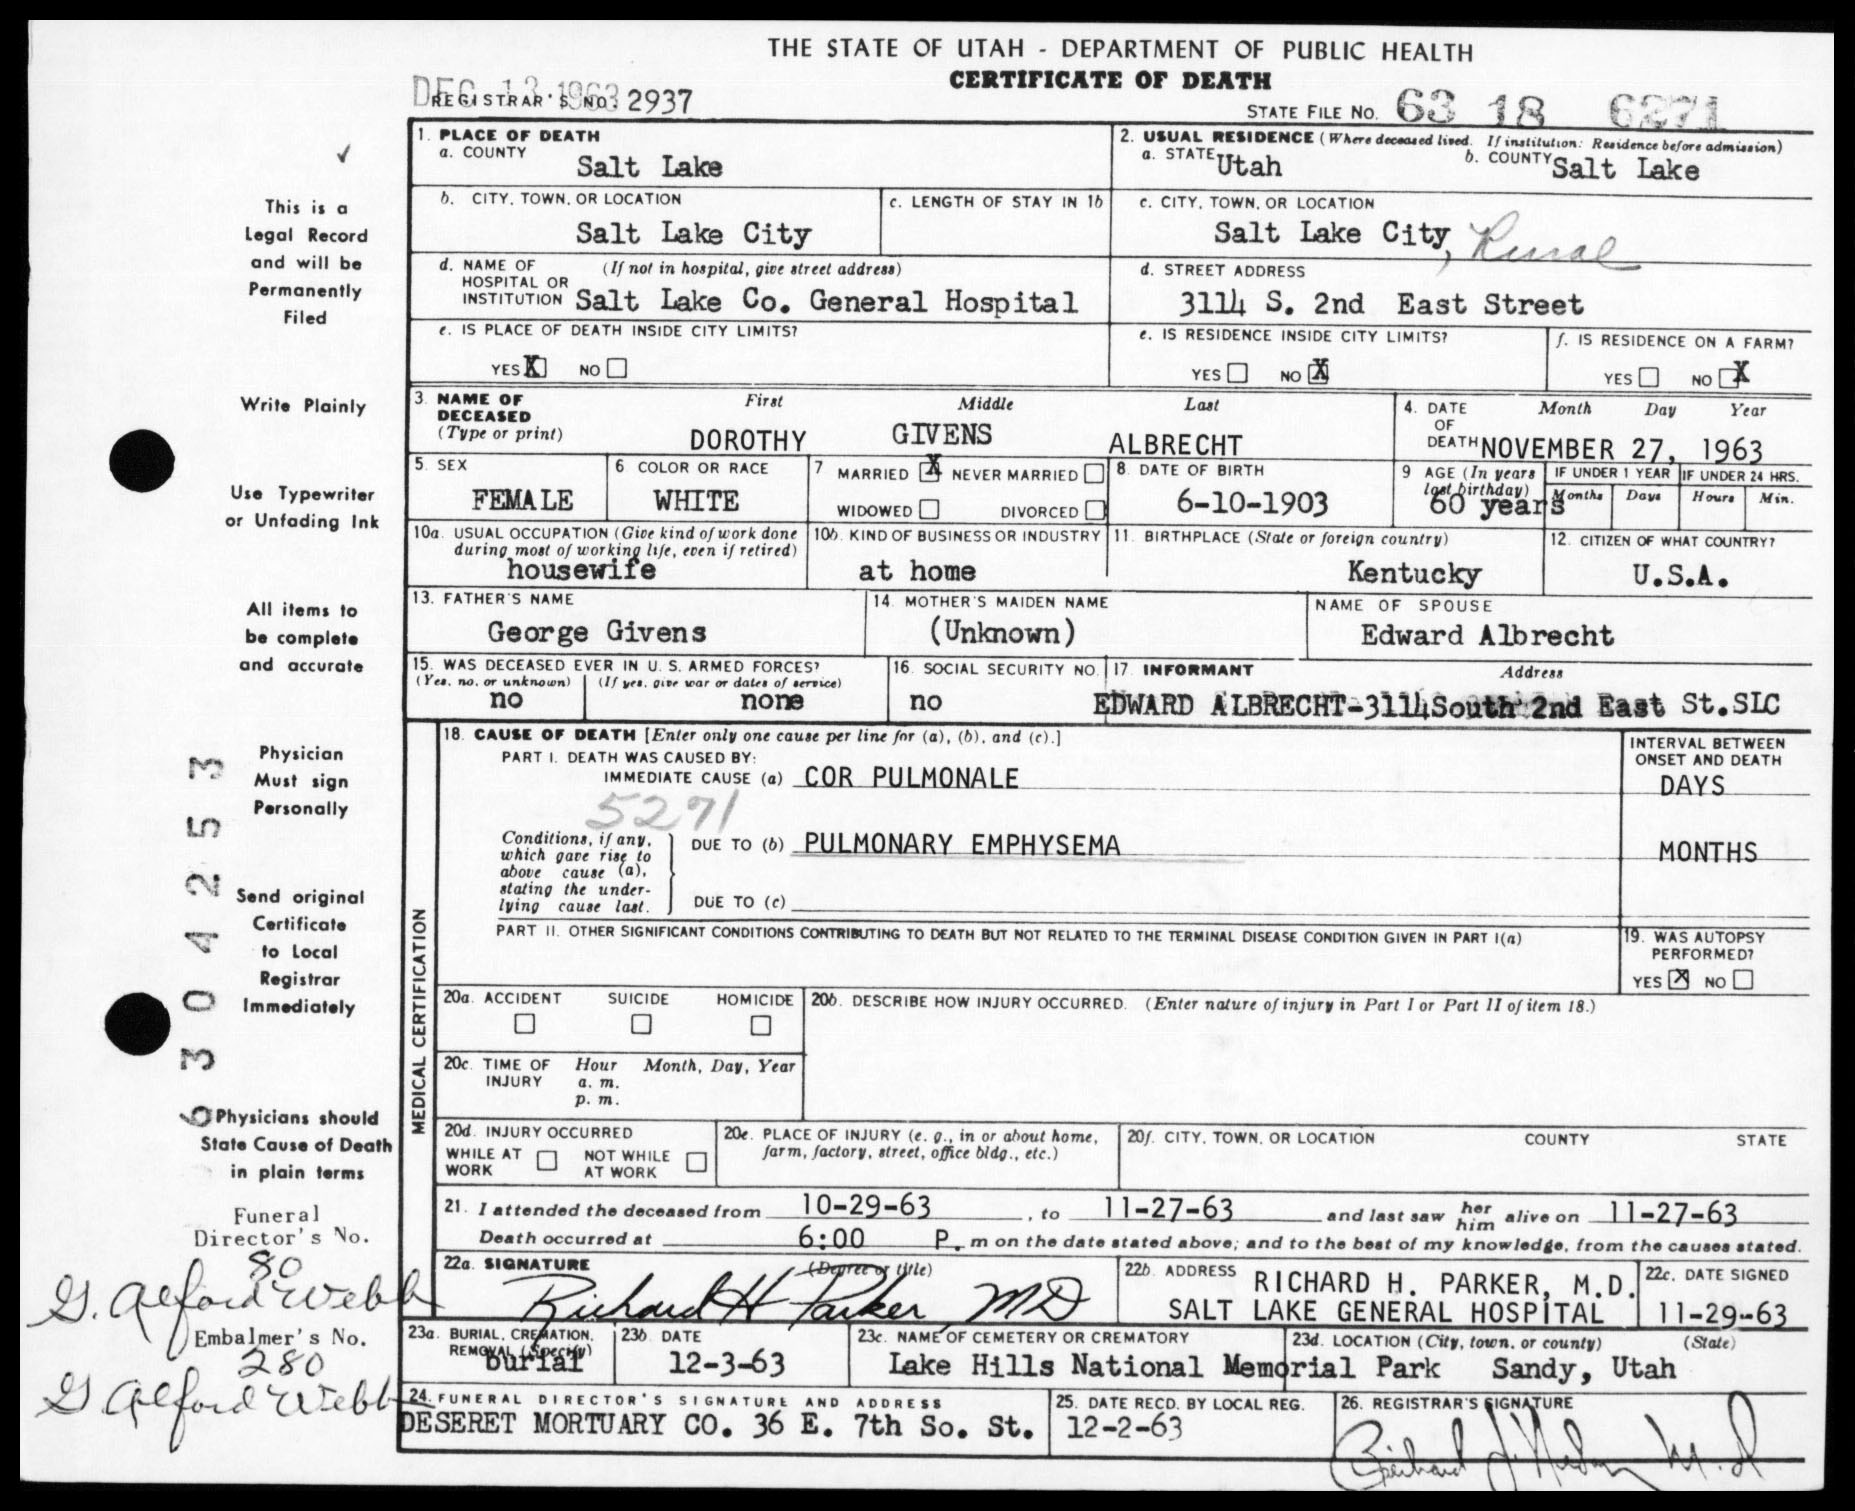 THE STATE OF UTAH - DEPARTMENT OF PUBLIC HEALTH
CERTIFICATE OF DEATH
DEC 13 1963
REGISTRAR'S NO. 2937
STATE FILE NO. 63 18 6271
✓
This is a
Legal Record
and will be
Permanently
Filed
Write Plainly
Use Typewriter
or Unfading Ink
All items to
be complete
and accurate
Physician
Must sign
Personally
Send original
Certificate
to Local
Registrar
Immediately
Physicians should
State Cause of Death
in plain terms
6304253
Funeral
Director's No.
80
G. Alford Webb
Embalmer's No.
280
G Alford Webb
1. PLACE OF DEATH
a. COUNTY Salt Lake
2. USUAL RESIDENCE (Where deceased lived. If institution: Residence before admission)
a. STATE Utah b. COUNTY Salt Lake
b. CITY, TOWN, OR LOCATION
Salt Lake City
c. LENGTH OF STAY IN 1b
c. CITY, TOWN, OR LOCATION
Salt Lake City, Rural
d. NAME OF HOSPITAL OR INSTITUTION (If not in hospital, give street address)
Salt Lake Co. General Hospital
d. STREET ADDRESS
3114 S. 2nd East Street
e. IS PLACE OF DEATH INSIDE CITY LIMITS?
YES X NO
e. IS RESIDENCE INSIDE CITY LIMITS?
YES NO X
f. IS RESIDENCE ON A FARM?
YES NO X
3. NAME OF DECEASED (Type or print) First Middle Last
DOROTHY GIVENS ALBRECHT
4. DATE OF DEATH Month Day Year
NOVEMBER 27, 1963
5. SEX
FEMALE
6 COLOR OR RACE
WHITE
7 MARRIED X NEVER MARRIED
WIDOWED DIVORCED
8. DATE OF BIRTH
6-10-1903
9 AGE (In years last birthday)
60 years
IF UNDER 1 YEAR
Months Days
IF UNDER 24 HRS.
Hours Min.
10a. USUAL OCCUPATION (Give kind of work done during most of working life, even if retired)
housewife
10b. KIND OF BUSINESS OR INDUSTRY
at home
11. BIRTHPLACE (State or foreign country)
Kentucky
12. CITIZEN OF WHAT COUNTRY?
U.S.A.
13. FATHER'S NAME
George Givens
14. MOTHER'S MAIDEN NAME
(Unknown)
NAME OF SPOUSE
Edward Albrecht
15. WAS DECEASED EVER IN U. S. ARMED FORCES?
(Yes, no, or unknown) (If yes, give war or dates of service)
no none
16. SOCIAL SECURITY NO.
no
17. INFORMANT Address
EDWARD ALBRECHT-3114South 2nd East St.SLC
MEDICAL CERTIFICATION
18. CAUSE OF DEATH [Enter only one cause per line for (a), (b), and (c).]
PART I. DEATH WAS CAUSED BY:
IMMEDIATE CAUSE (a) COR PULMONALE
5271
Conditions, if any, which gave rise to above cause (a), stating the underlying cause last.
DUE TO (b) PULMONARY EMPHYSEMA
DUE TO (c)
INTERVAL BETWEEN
ONSET AND DEATH
DAYS
MONTHS
PART II. OTHER SIGNIFICANT CONDITIONS CONTRIBUTING TO DEATH BUT NOT RELATED TO THE TERMINAL DISEASE CONDITION GIVEN IN PART I(a)
19. WAS AUTOPSY PERFORMED?
YES X NO
20a. ACCIDENT SUICIDE HOMICIDE
20b. DESCRIBE HOW INJURY OCCURRED. (Enter nature of injury in Part I or Part II of item 18.)
20c. TIME OF INJURY Hour Month, Day, Year
a. m.
p. m.
20d. INJURY OCCURRED
WHILE AT WORK NOT WHILE AT WORK
20e. PLACE OF INJURY (e. g., in or about home, farm, factory, street, office bldg., etc.)
20f. CITY, TOWN, OR LOCATION COUNTY STATE
21. I attended the deceased from 10-29-63, to 11-27-63 and last saw her him alive on 11-27-63
Death occurred at 6:00 P. m on the date stated above; and to the best of my knowledge, from the causes stated.
22a. SIGNATURE (Degree or title)
Richard H Parker, MD
22b. ADDRESS RICHARD H. PARKER, M.D.
SALT LAKE GENERAL HOSPITAL
22c. DATE SIGNED
11-29-63
23a. BURIAL, CREMATION, REMOVAL (Specify)
burial
23b. DATE
12-3-63
23c. NAME OF CEMETERY OR CREMATORY
Lake Hills National Memorial Park
23d. LOCATION (City, town, or county) (State)
Sandy, Utah
24. FUNERAL DIRECTOR'S SIGNATURE AND ADDRESS
DESERET MORTUARY CO. 36 E. 7th So. St.
25. DATE RECD. BY LOCAL REG.
12-2-63
26. REGISTRAR'S SIGNATURE